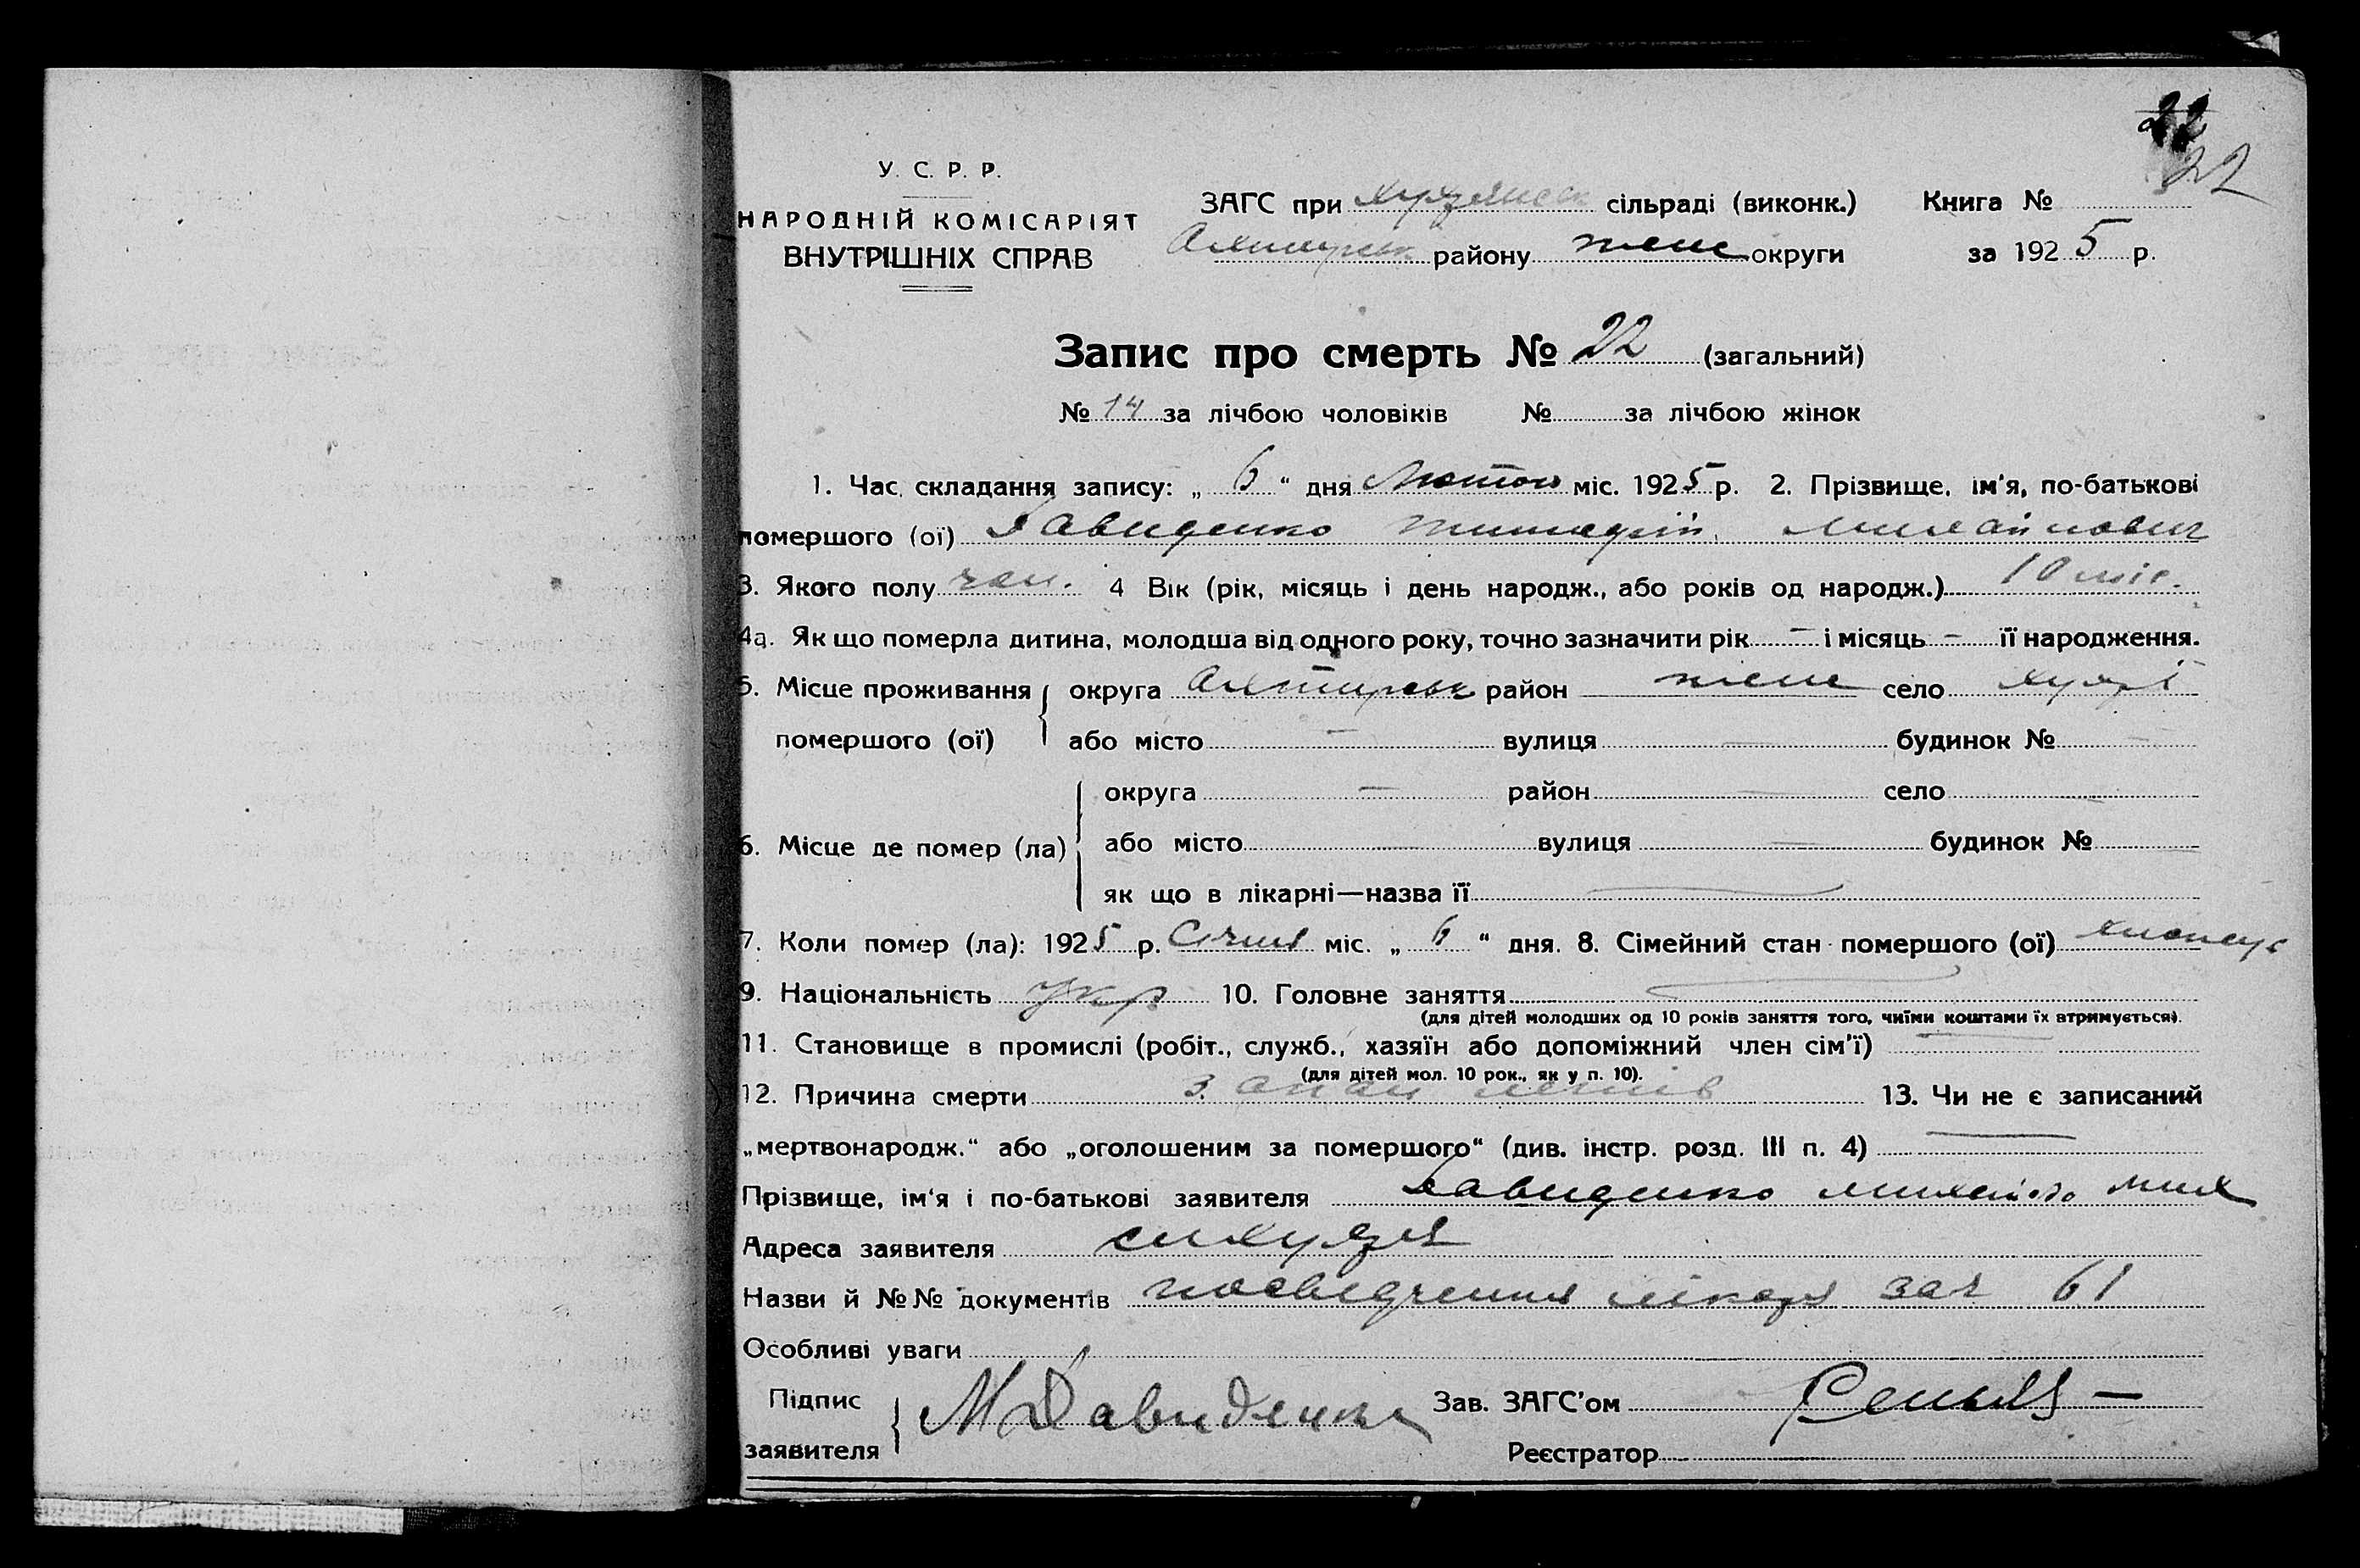 22
22
У. С. Р. Р.
НАРОДНІЙ КОМІСАРІЯТ
ВНУТРІШНІХ СПРАВ
ЗАГС при сільраді (виконк.) Книга №
району теж округи за 1925 р.
Запис про смерть № 22 (загальний)
№ 14 за лічбою чоловіків № за лічбою жінок
1. Час складання запису: „ 6 “ дня Лютого міс. 1925 р. 2. Прізвище, ім'я, по-батькові
помершого (ої) Давиденко Михайлович
3. Якого полу чол. 4 Вік (рік, місяць і день народж., або років од народж.) 10 міс.
4а. Як що померла дитина, молодша від одного року, точно зазначити рік – і місяць – її народження.
5. Місце проживання округа Охтирськ район теж село
помершого (ої) або місто — вулиця — будинок № —
округа — район — село —
6. Місце де помер (ла) або місто — вулиця — будинок № —
як що в лікарні—назва її —
7. Коли помер (ла): 1925 р. Січня міс. „ 6 “ дня. 8. Сімейний стан помершого (ої)
9. Національність укр 10. Головне заняття —
(для дітей молодших од 10 років заняття того, чиїми коштами їх втримується).
11. Становище в промислі (робіт., служб., хазяїн або допоміжний член сім'ї) —
(для дітей мол. 10 рок., як у п. 10).
12. Причина смерти запал легнів 13. Чи не є записаний
„мертвонародж.“ або „оголошеним за помершого“ (див. інстр. розд. III п. 4) —
Прізвище, ім‘я і по-батькові заявителя Давиденко Мих
Адреса заявителя
Назви й №№ документів посвідчення лікаря за № 61
Особливі уваги
Підпис М Давиденко Зав. ЗАГС'ом
заявителя Реєстратор